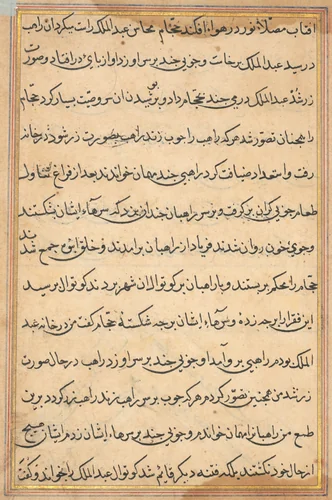 آفتاب مصلا نور در هوا افکند حجام محاسن عبدالملک راست میکرد آن راهب
در رسید عبدالملک برخاست و چوبی چند بر سر او زد او از پای در افتاد و صورت
زر شد عبدالملک درمی چند بحجام داد و پوشیدن آن سر وصیت بسیار کرد حجام
را همچنان تصور شد هر که راهب را چوب زند راهب بصورت زر شود در خانه
رفت و استعداد ضیافت کرد راهبی چند مهمان خواند بعد از فراغ تناول
طعام چوبی گران بر گرفت و بر سر راهبان چندان بزد که سرهاء ایشان بشکست
و جوی خون روان شد فریاد از راهبان برآمد و خلق انبوه جمع شد
حجام را محکم ببستند و با راهبان بر کوتوال شهر بردند کوتوال پرسید
این فقرا را بر چه زدۀ و سرهاء ایشان بر چه شکستۀ حجام گفت من در خانه عبد
الملک بودم راهبی بر و آمد او چوبی چند بر سر او زد راهب در حال صورت
زر شد من همچنین تصور کردم هر که چوب بر سر راهب زند راهب زر گردد برین
طمع من راهبانرا مهمان خواندم و چوبی چند بر سرهاء ایشان زدم ایشان هیچ
از حال خود نگشتند بلکه فتنه دیگر قایم شد کوتوال عبدالملک را خواند و گفت